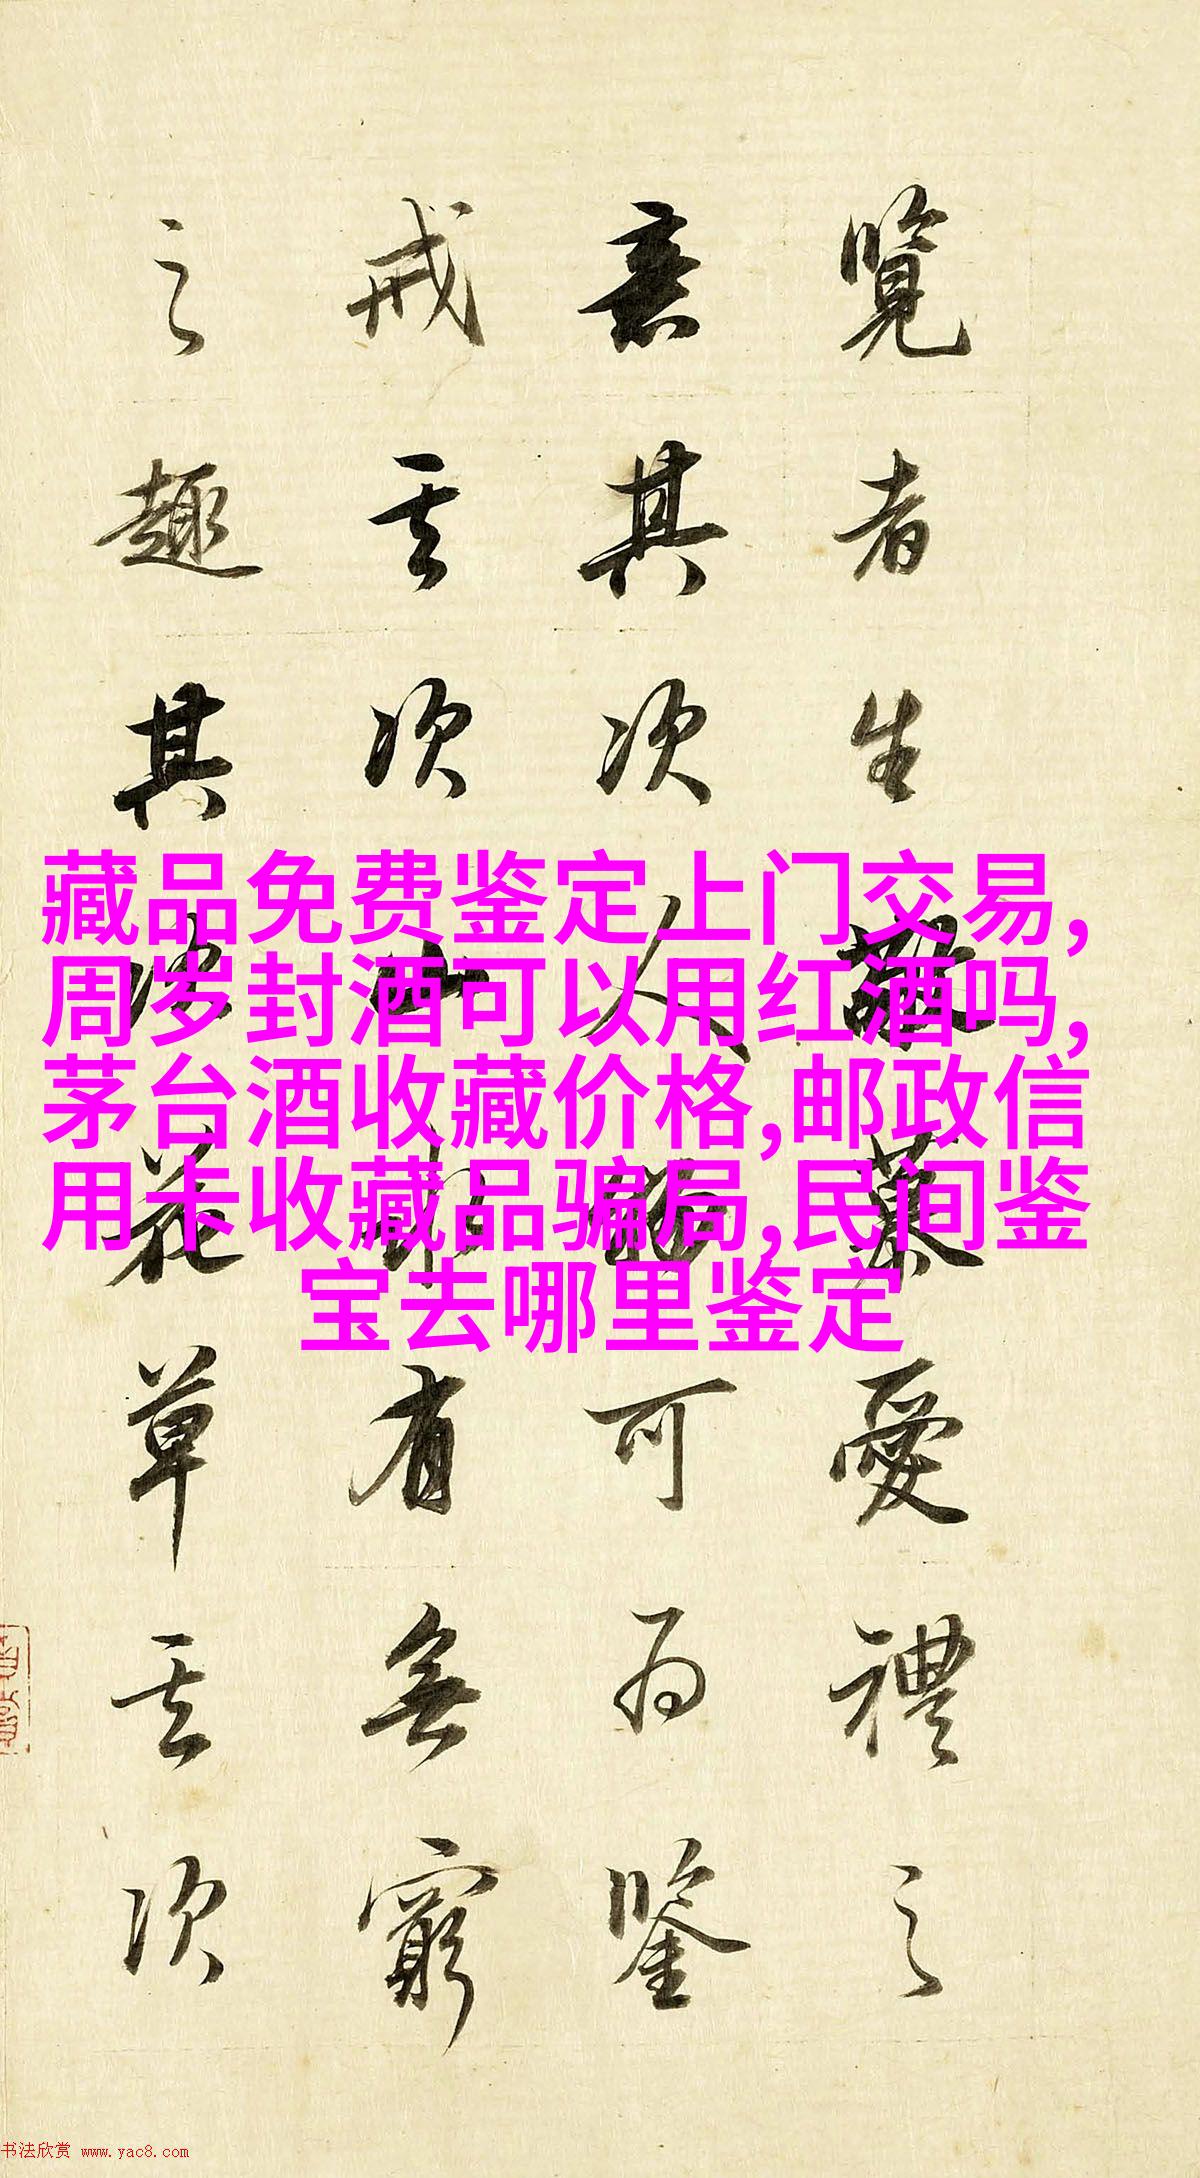 覽者生敬慕愛禮之
意其次人物可為鑒
戒其次山水有無窮
之趣其次花草其次
藏品免费鉴定上门交易,
周岁封酒可以用红酒吗,
茅台酒收藏价格,邮政信
用卡收藏品骗局,民间鉴
宝去哪里鉴定
书法欣赏 www.yac8.com